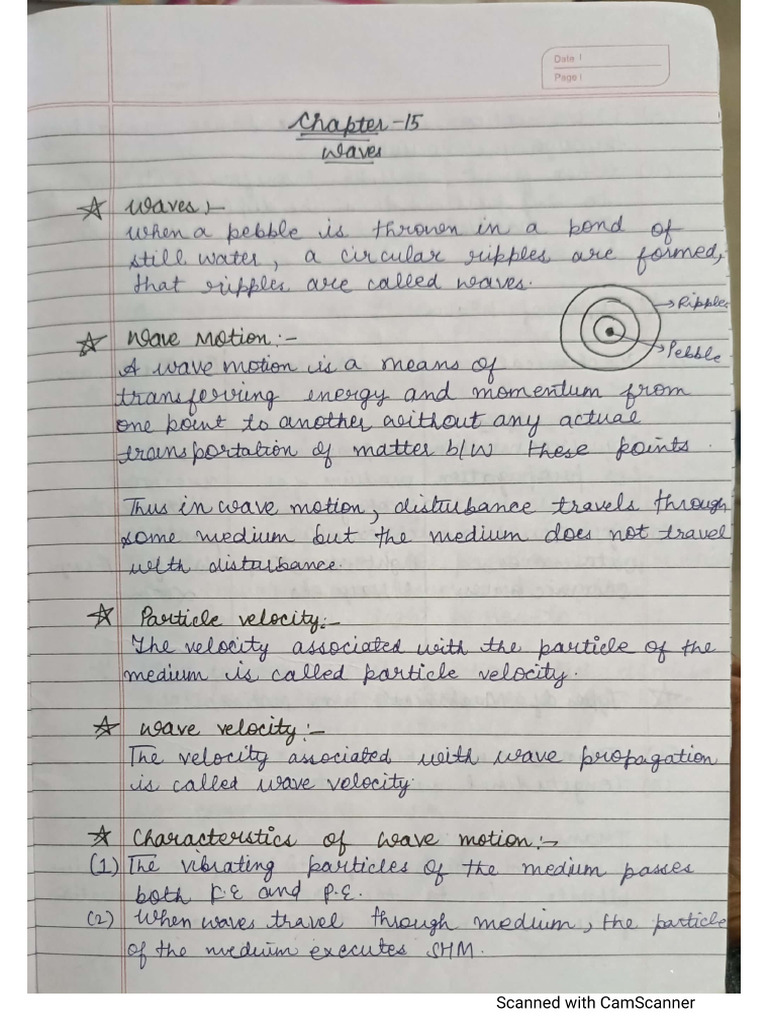 Date |
Page |
Chapter-15
Waves
☆ Waves:-
When a pebble is thrown in a pond of
still water, a circular ripples are formed,
that ripples are called waves.
→Ripples
→Pebble
☆ Wave Motion:-
A wave motion is a means of
transferring energy and momentum from
one point to another without any actual
transportation of matter b/w these points.
Thus in wave motion, disturbance travels through
some medium but the medium does not travel
with disturbance.
☆ Particle velocity:-
The velocity associated with the particle of the
medium is called particle velocity.
☆ Wave velocity:-
The velocity associated with wave propagation
is called wave velocity.
☆ Characterstics of wave motion:-
(1) The vibrating particles of the medium passes
both K.E and P.E.
(2) When waves travel through medium, the particle
of the medium executes SHM.
Scanned with CamScanner